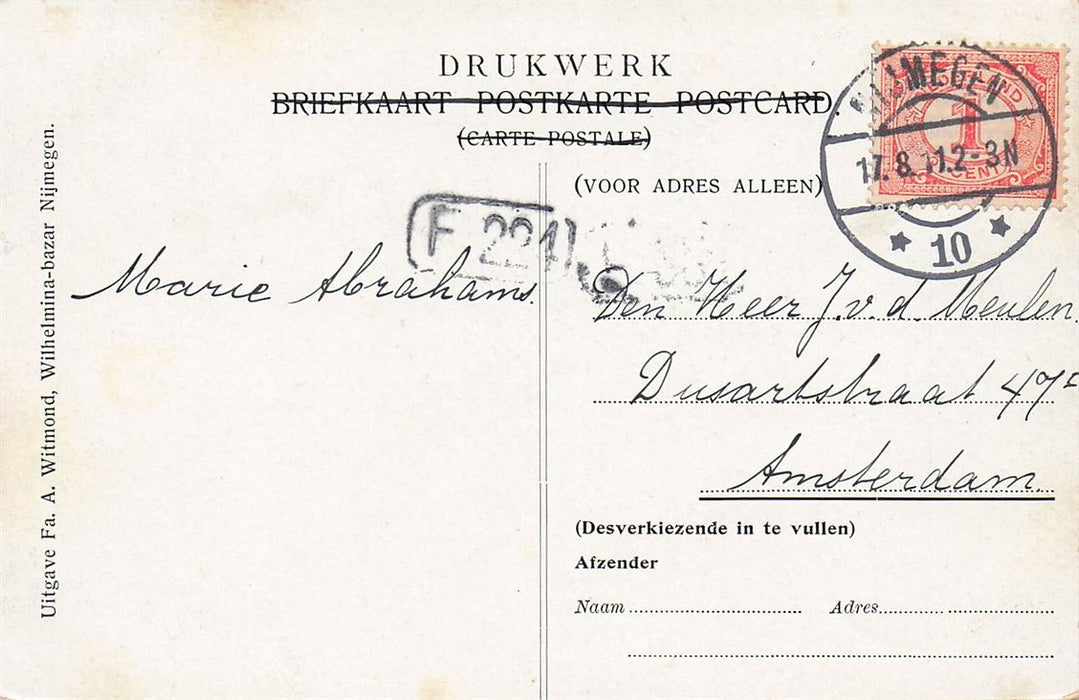 DRUKWERK
BRIEFKAART POSTKARTE POSTCARD.
(CARTE POSTALE)
(VOOR ADRES ALLEEN)
NIJMEGEN
17.8.11.2-3N
10
1
CENT
F 2241
Marie Abrahams.
Den Heer J. v. d. Meulen.
Dusartstraat 47c
Amsterdam.
(Desverkiezende in te vullen)
Afzender
Naam Adres
Uitgave Fa. A. Witmond, Wilhelmina-bazar Nijmegen.